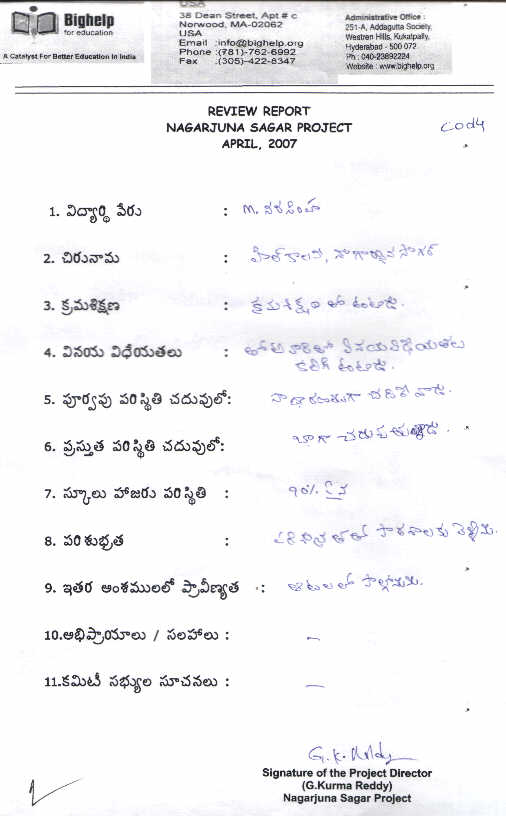 Bighelp
for education
A Catalyst For Better Education In India
USA
38 Dean Street, Apt # c
Norwood, MA-02062
USA
Email :info@bighelp.org
Phone :(781)-762-6992
Fax :(305)-422-8347
Administrative Office :
251-A, Addagutta Society,
Western Hills, Kukatpally,
Hyderabad - 500 072.
Ph : 040-23892224
Website : www.bighelp.org
REVIEW REPORT
NAGARJUNA SAGAR PROJECT
APRIL, 2007
COD4
1. విద్యార్థి పేరు : M. నరసింహ
2. చిరునామ : హిల్ కాలని, నాగార్జున సాగర్
3. క్రమశిక్షణ : క్రమశిక్షణ తో ఉంటాడు.
4. వినయ విధేయతలు : తోటివారితో వినయవిధేయతలు
కలిగి ఉంటాడు.
5. పూర్వపు పరిస్థితి చదువులో: సాధారణముగా చదివేవాడు.
6. ప్రస్తుత పరిస్థితి చదువులో: బాగా చదువుతున్నాడు.
7. స్కూలు హాజరు పరిస్థితి : 90% పైన
8. పరిశుభ్రత : పరిశుభ్రతతో పాఠశాలకు
9. ఇతర అంశములలో ప్రావీణ్యత : ఆటలలో
10.అభిప్రాయాలు / సలహాలు : –
11.కమిటీ సభ్యుల సూచనలు : –
G.K. Reddy
Signature of the Project Director
(G.Kurma Reddy)
Nagarjuna Sagar Project